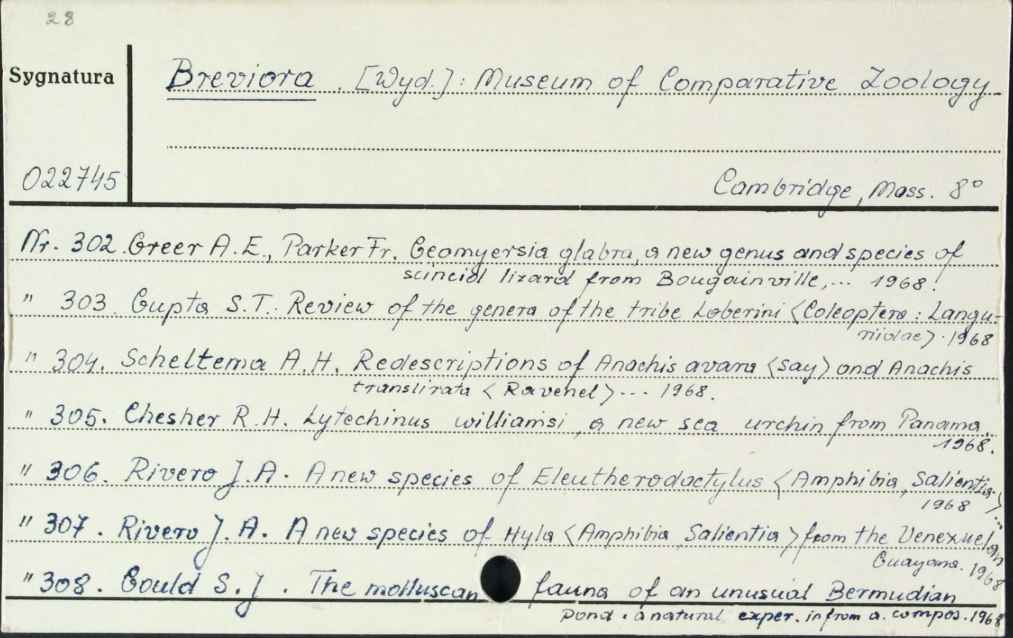 28
Sygnatura
Breviora . [Wyd.]: Museum of Comparative Zoology
022745
Cambridge, Mass. 8°
Nr. 302. Greer A.E., Parker Fr. Geomyersia glabra, a new genus and species of
scincid lizard from Bougainville,... 1968.
" 303. Gupta S.T. Review of the genera of the tribe Loberini <Coleoptera: Langu-
riidae>. 1968
" 304. Scheltema A.H. Redescriptions of Anachis avara <Say> and Anachis
translirata <Ravenel>... 1968.
" 305. Chesher R.H. Lytechinus williamsi, a new sea urchin from Panama.
1968.
" 306. Rivero J.A. A new species of Eleutherodactylus <Amphibia, Salientia>...
1968
" 307. Rivero J.A. A new species of Hyla <Amphibia Salientia> from the Venezuelan
Guayana. 1968
" 308. Gould S.J. The molluscan fauna of an unusual Bermudian
pond. a natural exper. in from a. compos. 1968